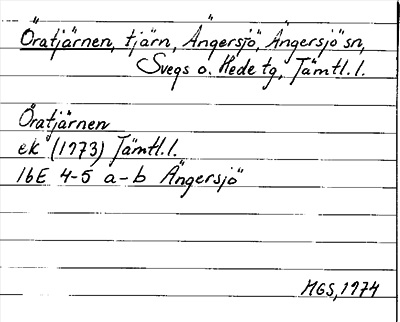 Öratjärnen, tjärn, Ängersjö, Ängersjö sn,
Svegs o. Hede tg, Jämtl.l.
Öratjärnen
ek (1973) Jämtl.l.
16E 4-5 a-b Ängersjö
MGS, 1974